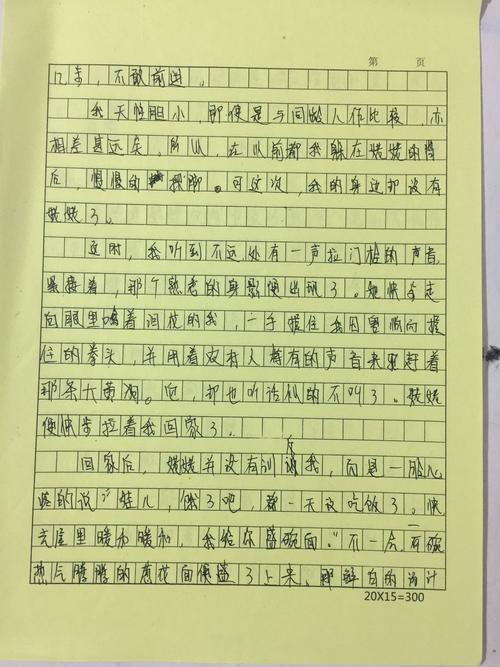 第 页
几步，不敢前进。
我天性胆小，即使是与同龄人作比较，亦
相差甚远矣。所以，在以前都我躲在姥姥的背
后，慢慢的挪脚。可这次，我的身边却没有
姥姥了。
这时，我听到不远处有一声拉门栓的声音，
紧接着，那个熟悉的身影便出现了。她快步走
向眼里噙着泪花的我，一手握住我因害怕而握
住的拳头，并用着农村人特有的声音来驱赶着
那条大黄狗。向，却也听话似的不叫了。姥姥
便快步拉着我回家了。
回家后，姥姥并没有训斥我，而是一脸心
疼的说："娃儿，饿了吧，都一天没吃饭了。快
去屋里暖和暖和，我给你盛碗面。"不一会一碗
热气腾腾的葱花面便盛了上来。那鲜白的
20X15=300